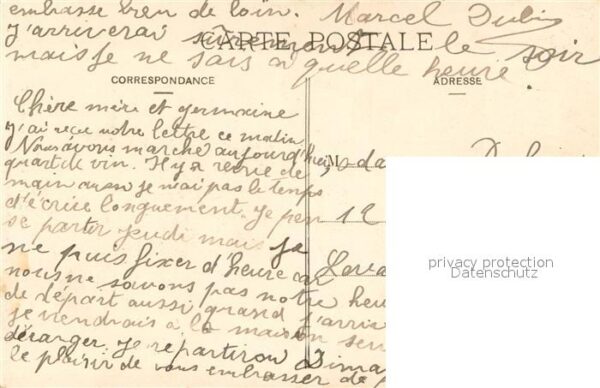 embrasse bien de loin. Marcel
j'arriverai le soir
CARTE POSTALE
mais je ne sais à quelle heure.
CORRESPONDANCE
ADRESSE
Chère mère et germaine
j'ai reçue notre lettre ce matin
Nous avons marché aujourd'hui,
quart de vin. Il y a revue de
main aussi je n'ai pas le temps
d'écrire longuement. Je pen
se partir jeudi mais je
ne puis fixer d'heure car
nous ne savons pas notre heu
de départ aussi quand j'arri
je viendrais à la maison sen
déranger. Je repartirai Dima
le plaisir de vous embrasser de
M
12
Leva
privacy protection
Datenschutz